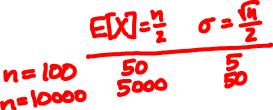 E[X]=n/2 σ=√n/2
n=100 50 5
n=10000 5000 50